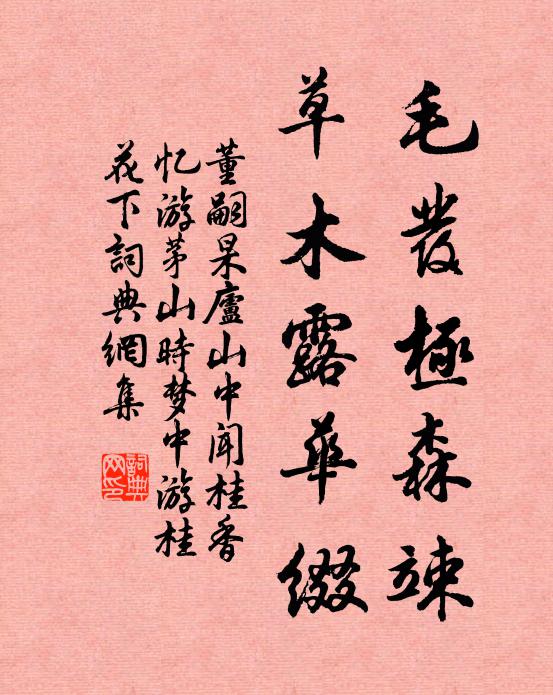 毛發極森竦
草木露華綴
董嗣杲廬山中闻桂香
忆游茅山時梦中游桂
花下詞典網集
詞典网印